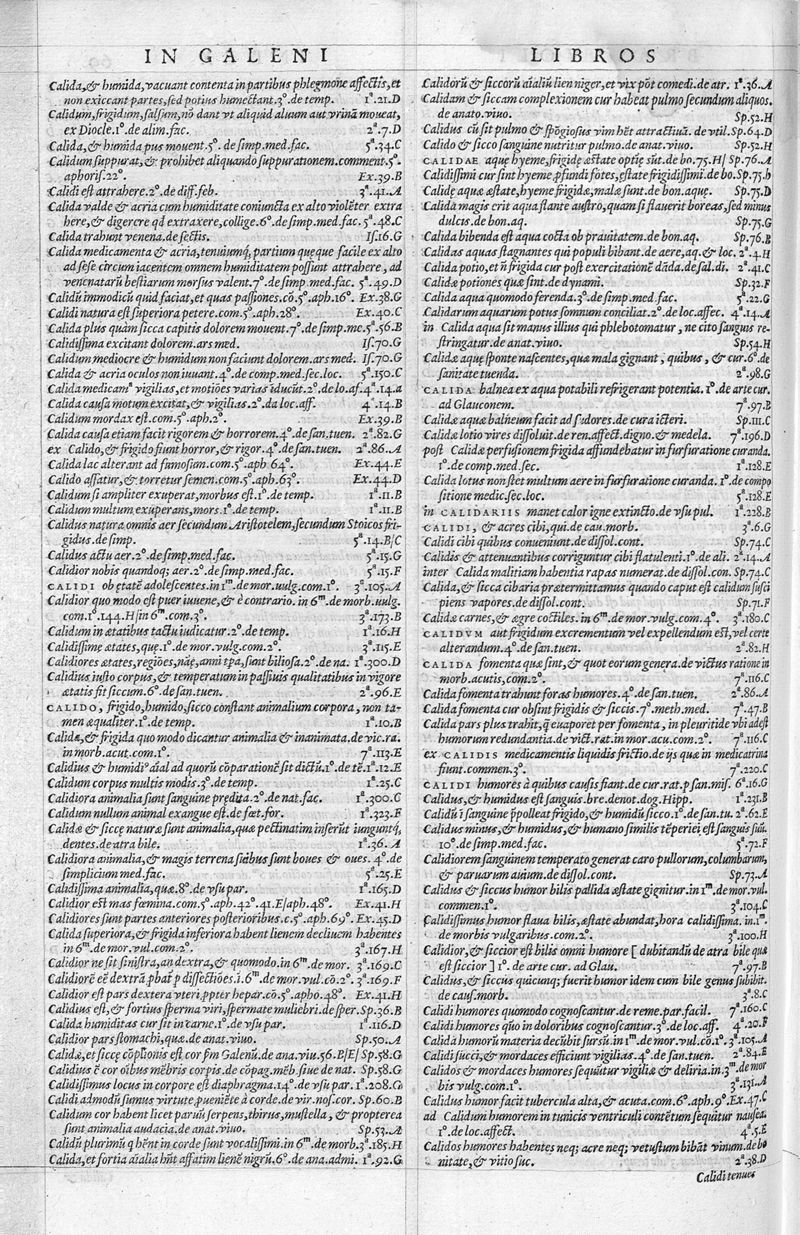 IN GALENI
Calida, & humida, vacuant contenta in partibus phlegmone affectis, et
non exiccant partes, sed potius humectant. 3°. de temp. 1ª.21.D
Calidum, frigidum, salsum, nō dant vt aliquid aluum aut vrinā moueat,
ex Diocle. 1°. de alim. fac. 2ª.7.D
Calida, & humida pus mouent. 5°. de simp. med. fac. 5ª.34.C
Calidum suppurat, & prohibet aliquando suppurationem. comment. 5°.
aphoris. 22°. Ex.39.B
Calidi est attrahere. 2°. de diff. feb. 3ª.41.A
Calida valde & acria cum humiditate coniuncta ex alto violēter extra
here, & digerere qd extraxere, collige. 6°. de simp. med. fac. 5ª.48.C
Calida trahunt venena. de sectis. Is.16.G
Calida medicamenta & acria, tenuiumq́, partium quęque facile ex alto
ad sese circum iacentem omnem humiditatem possunt attrahere, ad
venenatarū bestiarum morsus valent. 7°. de simp. med. fac. 5ª.49.D
Calidū immodicū quid faciat, et quas passiones. cō. 5°. aph. 16°. Ex.38.G
Calidi natura est superiora petere. com. 5°. aph. 28°. Ex.40.C
Calida plus quam sicca capitis dolorem mouent. 7°. de simp. me. 5ª.56.B
Calidissima excitant dolorem. ars med. Is.70.G
Calidum mediocre & humidum non faciunt dolorem. ars med. Is.70.G
Calida & acria oculos non iuuant. 4°. de comp. med. sec. loc. 5ª.150.C
Calida medicamᵃ vigilias, et motiōes varias īducūt. 2°. de lo. af. 4ª.14.a
Calida causa motum excitat, & vigilias. 2°. da loc. aff. 4ª.14.B
Calidum mordax est. com. 5°. aph. 2°. Ex.39.B
Calida causa etiam facit rigorem & horrorem. 4°. de san. tuen. 2ª.82.G
ex Calido, & frigido fiunt horror, & rigor. 4°. de san. tuen. 2ª.86.A
Calida lac alterant ad fumosum. com. 5°. aph 64°. Ex.44.E
Calido assatur, & torretur semen. com. 5°. aph. 63°. Ex.44.D
Calidum si ampliter exuperat, morbus est. 1°. de temp. 1ª.11.B
Calidum multum exuperans, mors. 1°. de temp. 1ª.11.B
Calidus natura omnis aer secundum Aristotelem, secundum Stoicos fri-
gidus. de simp. 5ª.14.B/C
Calidus actu aer. 2°. de simp. med. fac. 5ª.15.G
Calidior nobis quandoq; aer. 2°. de simp. med. fac. 5ª.15.F
CALIDI ob ętatē adolescentes. in 1ᵐ. de mor. uulg. com. 1°. 3ª.105.A
Calidior quo modo est puer iuuene, & è contrario. in 6ᵐ. de morb. uulg.
com. 1°. 144.H/in 6ᵐ. com. 3°. 3ª.173.B
Calidum in ætatibus tactu iudicatur. 2°. de temp. 1ª.16.H
Calidissimę ætates, quę. 1°. de mor. vulg. com. 2°. 3ª.115.E
Calidiores ætates, regiōes, naꝫ, anni tpa, sunt biliosa. 2°. de na. 1ª.300.D
Calidius iusto corpus, & temperatum in passiuis qualitatibus in vigore
ætatis fit siccum. 6°. de san. tuen. 2ª.96.E
CALIDO, frigido, humido, sicco constant animalium corpora, non ta-
men æqualiter. 1°. de temp. 1ª.10.B
Calida, & frigida quo modo dicantur animalia & inanimata. de vic. ra.
in morb. acut. com. 1°. 7ª.113.E
Calidius & humidi° aīal ad quorū cōparationē sit dictū. 1°. de tē. 1ª.12.E
Calidum corpus multis modis. 3°. de temp. 1ª.25.C
Calidiora animalia sunt sanguine prędita. 2°. de nat. fac. 1ª.300.C
Calidum nullum animal exangue est. de fœt. for. 1ª.323.F
Calidæ & siccę naturæ sunt animalia, quæ pectinatim inserūt iunguntq́,
dentes. de atra bile. 1ª.36.A
Calidiora animalia, & magis terrena suibus sunt boues & oues. 4°. de
simplicium med. fac. 5ª.25.E
Calidissima animalia, quæ. 8°. de vsu par. 1ª.165.D
Calidior est mas fœmina. com. 5°. aph. 42°. 41.E/aph. 48°. Ex.41.H
Calidiores sunt partes anteriores posterioribus. c. 5°. aph. 69°. Ex.45.D
Calida superiora, & frigida inferiora habent lienem decliuem habentes
in 6ᵐ. de mor. vul. com. 2°. 3ª.167.H
Calidior ne sit sinistra, an dextra, & quomodo. in 6ᵐ. de mor. 3ª.169.C
Calidiorē eē dextrā ꝓbat̄ p dissectiōes. i. 6ᵐ. de mor. vul. cō. 2°. 3ª.169.F
Calidior est pars dextera vteri, ꝓpter hepar. cō. 5°. apho. 48°. Ex.41.H
Calidius est, & fortius sperma viri, spermate muliebri. de sper. Sp.36.B
Calida humiditas cur sit in carne. 1°. de vsu par. 1ª.116.D
Calidior pars stomachi, quæ. de anat. viuo. Sp.50.A
Calidæ, et siccę cōplionis est cor ꝓm Galenū. de ana. viu. 56.B/E/ Sp.58.G
Calidius ē cor oībus mēbris corpis. de cōpag. mēb. siue de nat. Sp.58.G
Calidissimus locus in corpore est diaphragma. 14°. de vsu par. 1ª.208.G
Calidi admodū sumus virtute ꝓueniēte à corde. de vir. nos. cor. Sp.60.B
Calidum cor habent licet paruū serpens, thirus, mustella, & propterea
sunt animalia audacia. de anat. viuo. Sp.53.A
Calidū plurimū q hēnt in corde sunt vocalissimi. in 6ᵐ. de morb. 3ª.185.H
Calida, et fortia aīalia hn̄t affatim lienē nigrū. 6°. de ana. admi. 1ª.92.G
LIBROS
Calidorū & siccorū aīaliū lien niger, et vix pōt comedi. de atr. 1ª.36.A
Calidam & siccam complexionem cur habeat pulmo secundum aliquos.
de anato. viuo. Sp.52.H
Calidus cū sit pulmo & spōgiosus vim hēt attractiuā. de vtil. Sp.64.D
Calido & sicco sanguine nutritur pulmo. de anat. viuo. Sp.52.H
CALIDAE aquę hyeme, frigidę æstate optīę sūt. de bo. 75.H/ Sp.76.A
Calidissimi cur sint hyeme ꝓfundi fōtes, ęstate frigidissimi. de bo. Sp.75.h
Calidę aquæ æstate, hyeme frigidæ, malæ sunt. de bon. aquę. Sp.75.D
Calida magis erit aqua flante austro, quam si flauerit boreas, sed minus
dulcis. de bon. aq. Sp.75.G
Calida bibenda est aqua cocta ob prauitatem. de bon. aq. Sp.76.B
Calidas aquas stagnantes qui populi bibant. de aere, aq. & loc. 2ª.4.H
Calida potio, et n̄ frigida cur post exercitationē dāda. de sal. di. 2ª.41.C
Calidæ potiones quæ sint. de dynami. Sp.32.F
Calida aqua quomodo ferenda. 3°. de simp. med. fac. 5ª.22.G
Calidarum aquarum potus somnum conciliat. 2°. de loc. affec. 4ª.14.A
in Calida aqua sit manus illius qui phlebotomatur, ne cito sanguis re-
stringatur. de anat. viuo. Sp.54.H
Calidæ aquę sponte nascentes, quæ mala gignant, quibus, & cur. 6°. de
sanitate tuenda. 2ª.98.G
CALIDA balnea ex aqua potabili refrigerant potentia. 1°. de arte cur.
ad Glauconem. 7ª.97.B
Calidæ aquæ balneum facit ad sudores. de cura icteri. Sp.111.C
Calidæ lotio vires dissoluit. de ren. affect. digno. & medela. 7ª.196.D
post Calidæ perfusionem frigida affundebatur in furfuratione curanda.
1°. de comp. med. sec. 1ª.128.E
Calida lotus non stet multum aere in furfuratione curanda. 1°. de compo
sitione medic. sec. loc. 5ª.128.E
in CALIDARIIS manet calor igne extincto. de vsu pul. 1ª.228.B
CALIDI, & acres cibi, qui. de cau. morb. 3ª.6.G
Calidi cibi quibus conueniunt. de dissol. cont. Sp.74.C
Calidis & attenuantibus corriguntur cibi flatulenti. 1°. de ali. 2ª.14.A
inter Calida malitiam habentia rapas numerat. de dissol. con. Sp.74.C
Calida, & sicca cibaria prætermittamus quando caput est calidum susci
piens vapores. de dissol. cont. Sp.71.F
Calidæ carnes, & ægre coctiles. in 6ᵐ. de mor. vulg. com. 4°. 3ª.180.C
CALIDVM aut frigidum excrementum vel expellendum est, vel certe
alterandum. 4°. de san. tuen. 2ª.82.H
CALIDA fomenta quæ sint, & quot eorum genera. de victus ratione in
morb. acutis, com. 2°. 7ª.116.C
Calida fomenta trahunt foras humores. 4°. de san. tuen. 2ª.86.A
Calida fomenta cur obsint frigidis & siccis. 7°. meth. med. 7ª.47.B
Calida pars plus trahit, q̄ euaporet per fomenta, in pleuritide vbi adest
humorum redundantia. de vict. rat. in mor. acu. com. 2°. 7ª.116.C
ex CALIDIS medicamentis liquidis frictio. de ijs quæ in medicatrina
fiunt. commen. 3°. 7ª.220.C
CALIDI humores à quibus causis fiant. de cur. rat. p san. mis. 6ª.16.G
Calidus, & humidus est sanguis. bre. denot. dog. Hipp. 1ª.231.B
Calidū ī sanguine ꝓpolleat frigido, & humidū sicco. 1°. de san. tu. 2ª.62.E
Calidus minus, & humidus, & humano similis tēperiei est sanguis suū.
10°. de simp. med. fac. 5ª.72.F
Calidiorem sanguinem temperato generat caro pullorum, columbarum,
& paruarum auium. de dissol. cont. Sp.73.A
Calidus & siccus humor bilis pallida æstate gignitur. in 1ᵐ. de mor. vul.
commen. 1°. 3ª.104.C
Calidissimus humor flaua bilis, æstate abundat, hora calidissima. in. 1ᵐ.
de morbis vulgaribus. com. 2°. 3ª.100.H
Calidior, & siccior est bilis omni humore [ dubitandū de atra bile quæ
est siccior ] 1°. de arte cur. ad Glau. 7ª.97.B
Calidus, & siccus quicunq; fuerit humor idem cum bile genus subibit.
de caus. morb. 3ª.8.C
Calidi humores quomodo cognoscantur. de reme. par. facil. 7ª.160.C
Calidi humores quō in doloribus cognoscantur. 3°. de loc. aff. 4ª.20.F
Calidā humorū materia decūbit sursū. in 1ᵐ. de mor. vul. cō. 1°. 3ª.105.A
Calidi succi, & mordaces efficiunt vigilias. 4°. de san. tuen. 2ª.84.E
Calidos & mordaces humores sequūtur vigiliæ & deliria. in 3ᵐ. de mor
bis vulg. com. 1°. 3ª.131.A
Calidus humor facit tubercula alta, & acuta. com. 6°. aph. 9°. Ex.47.C
ad Calidum humorem in tunicis ventriculi contētum sequitur nausea.
1°. de loc. affect. 4ª.5.E
Calidos humores habentes neq; acre neq; vetustum bibāt vinum. de bo
nitate, & vitio suc. 2ª.38.D
Calidi tenues